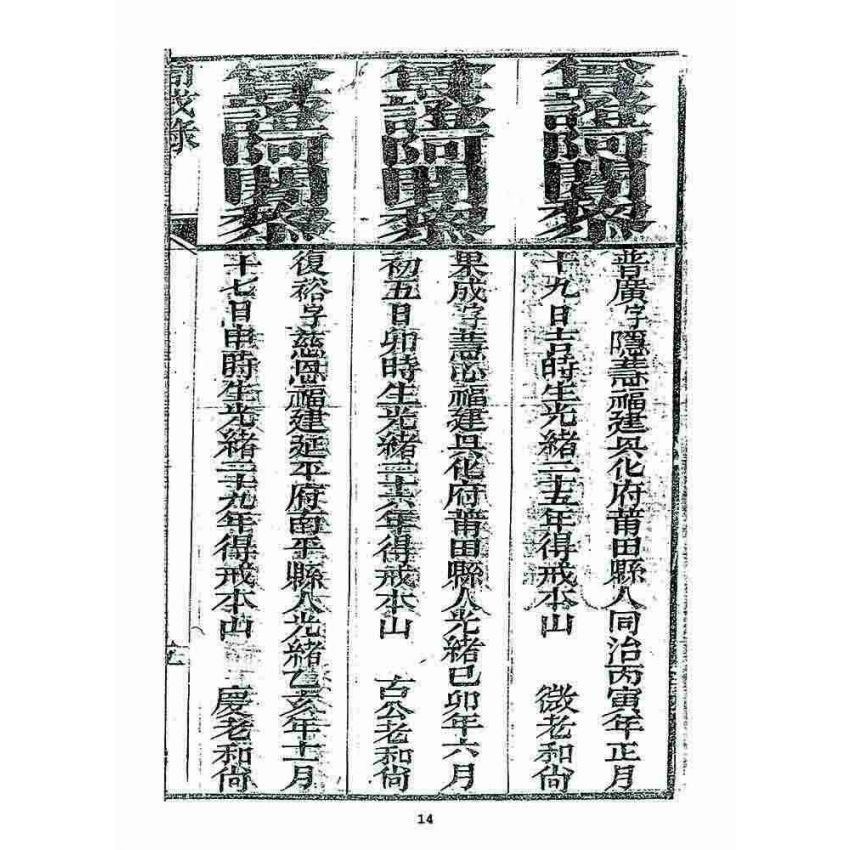 尊證阿闍黎
普廣字隱慧福建興化府莆田縣人同治丙寅年正月
十九日吉時生光緒二十五年得戒本山 微老和尚
尊證阿闍黎
果成字慧心福建興化府莆田縣人光緒己卯年六月
初五日卯時生光緒二十六年得戒本山 古公老和尚
尊證阿闍黎
復裕字慈恩福建延平府南平縣人光緒乙亥年十一月
十七日申時生光緒二十九年得戒本山 慶老和尚
同戒錄
14